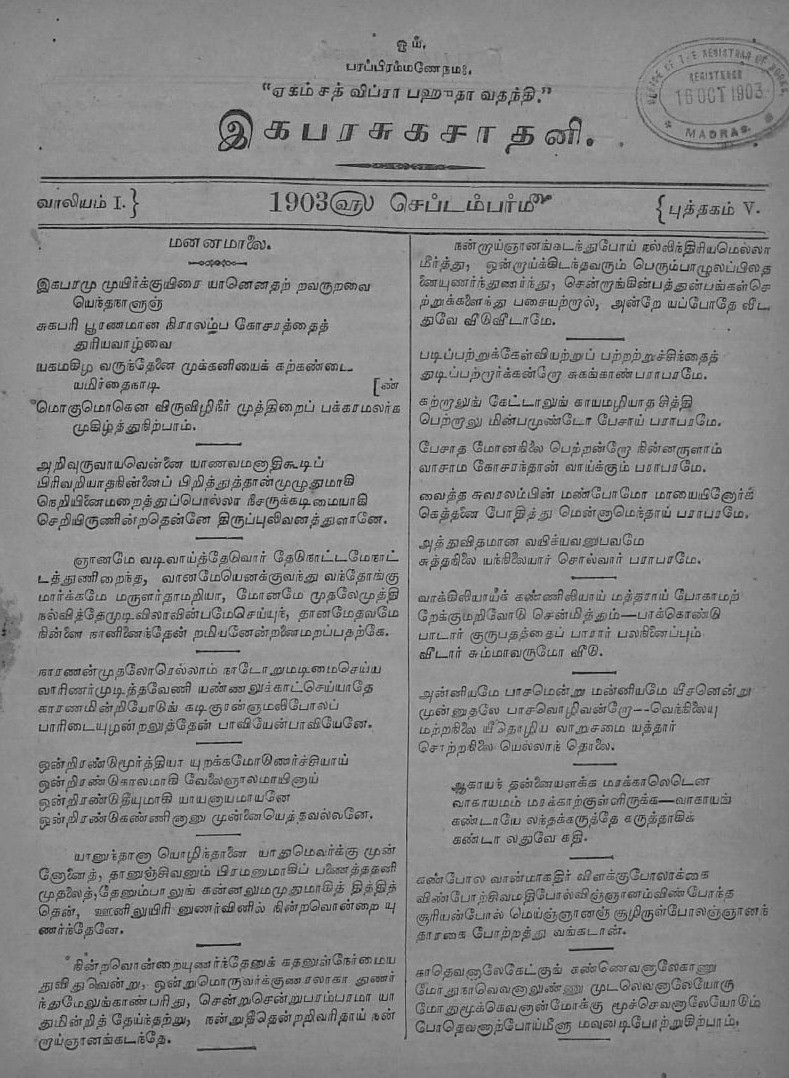 ஓம்.
பரப்பிரம்மணேநமஃ,
“ஏகம்சத் விப்ரா பஹுதா வதந்தி.”
இகபரசுகசாதனி.
REGISTERED
16 OCT 1903
MADRAS
வாலியம் I.}
1903௵ செப்டம்பர்௴
{புத்தகம் V.
மனனமாலை.
இகபரமு முயிர்க்குயிரை யானெனதற் றவருறவை
யெந்தநாளுஞ்
சுகபரி பூரணமான நிராலம்ப கோசரத்தைத்
துரியவாழ்வை
யகமகிழ வருந்தேனை முக்கனியைக் கற்கண்டை
யமிர்தைநாடி [ண்
மொகுமொகென விருவிழிநீர் முத்திறைப் பக்கரமலர்க
முகிழ்த்துநிற்பாம்.
அறிவுருவாயவென்னை யாணவமனாதிகூடிப்
பிரிவறியாதநின்னைப் பிறித்துத்தான்முழுதுமாகி
நெறியினைமறைத்துப்பொல்லா நீசருக்கடிமையாகி
செறியிருணின்றதென்னே திருப்புலிவனத்துளானே.
ஞானமே வடிவாய்த்தேடுவார் தேடுநாட்டமேநாட்
டத்துணிறைந்த, வானமேயெனக்குவந்து வந்தோங்கு
மார்க்கமே மருளர்தாமறியா, மோனமே முதலேமுத்தி
நல்வித்தேமுடிவிலாவின்பமேசெய்யுந், தானமேதவமே
நின்னை நானினைந்தேன் றமியனேன்றனைமறப்பதற்கே.
நாரணன்முதலோரெல்லாம் நாடோறுமடிமைசெய்ய
வாரிணர்முடித்தவேணி யண்ணலுக்காட்செய்யாதே
காரணமின்றியோடுங் கடிகுரன்ஞமலிபோலப்
பாரிடையுழன்றலுத்தேன் பாவியேன்பாவியேனே.
ஒன்றிரண்டுமூர்த்தியா யுறக்கமோடுணர்ச்சியாய்
ஒன்றிரண்டுகாலமாகி வேலைஞாலமாயினாய்
ஒன்றிரண்டுதீயுமாகி யாயனாயமாயனே
ஒன்றிரண்டுகண்ணினானு முன்னையெத்தவல்லனே.
யானுந்தானா யொழிந்தானை யாதுமெவர்க்கு முன்
னோனைத், தானுஞ்சிவனும் பிரமனுமாகிப் பணைத்ததனி
முதலைத்,தேனும்பாலுங் கன்னலுமமுதுமாகித் தித்தித்
தென், ஊனிலுயிரி னுணர்வினில் நின்றவொன்றை யு
ணர்ந்தேனே.
நின்றவொன்றையுணர்ந்தேனுக் கதனுள்நேர்மைய
துவிதுவென்று, ஒன்றுமொருவர்க்குணரலாகா துணர்
ந்துமேலுங்காண்பரிது, சென்றுசென்றுபரம்பரமா யா
துமின்றித் தேய்ந்தற்று, நன்றுதீதென்றறிவரிதாய் நன்
றாய்ஞானங்கடந்தே.
நன்றாய்ஞானங்கடந்துபோய் நல்லிந்திரியமெல்லா
மீர்த்து, ஒன்றாய்க்கிடந்தவரும் பெரும்பாழுலப்பிலத
னையுணர்ந்துணர்ந்து, சென்றாங்கின்பத்துன்பங்கள்செ
ற்றுக்களைந்து பசையற்றால், அன்றே யப்போதே வீட
துவே வீடுவீடாமே.
படிப்பற்றுக்கேள்வியற்றுப் பற்றற்றுச்சிந்தைத்
துடிப்பற்றார்க்கன்றோ சுகங்காண்பராபரமே.
கற்றாலுங் கேட்டாலுங் காயமழியாத சித்தி
பெற்றாலு மின்பமுண்டோ பேசாய் பராபரமே.
பேசாத மோனநிலை பெற்றன்றோ நின்னருளாம்
வாசாம கோசரந்தான் வாய்க்கும் பராபரமே.
வைத்த சுவரலம்பின் மண்போமோ மாயையினோர்க்
கெத்தனை போதித்து மென்னாமெந்தாய் பராபரமே.
அத்துவிதமான வயிக்யவனுபவமே
சுத்தநிலை யந்நிலையார் சொல்வார் பராபரமே.
வாக்கிலியாய்க் கண்ணிலியாய் மத்தராய் போகாமற்
றேக்குமறிவோடு சென்மித்தும்—பாக்கொண்டு
பாடார் குருபதத்தைப் பாரார் பலநினைப்பும்
வீடார் சும்மாவருமோ வீடு.
அன்னியமே பாசமென்று மன்னியமே யீசனென்று
முன்னுதலே பாசவொழிவன்றோ--வெந்நிலையு
மற்றநிலை யீதொழிய வாறாசமை யத்தார்
சொற்றநிலை யெல்லாந் தொலை.
ஆகாயந் தன்னையளக்க மரக்காலெடென
வாகாயமம் மரக்காற்குள்ளிருக்க—வாகாயங்
கண்டாயே லந்தக்கருத்தே கருத்தாகிக்
கண்டா லதுவே கதி.
கண்போல வான்மாகதிர் விளக்குபோலாக்கை
விண்போற்சிவமதிபோல்விஞ்ஞானம்விண்போந்த
சூரியன்போல் மெய்ஞ்ஞானஞ் சூழிருள்போலஞ்ஞானந்
தாரகை போற்றத்து வங்கடான்.
காதெவனாலேகேட்குங் கண்ணெவனாலேகாணு
மோதுநாவெவனாலுண்ணு முடலெவனாலேயோரு
மோதுமூக்கெவனான்மோக்கு மூச்செவனாலேயோடும்
போதெவனாற்போய்மீளு மவுனடிபோற்றுகிற்பாம்.